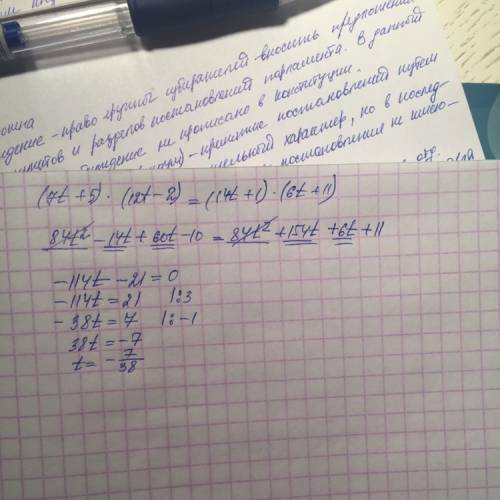 право группы избирателей вносить предложения
и разделов постановлений парламента. В данный
не прописано в конституции.
- принятие постановлений путем
характер, но в послед-
постановление не имею-
(7t + 5) · (12t - 2) = (14t + 1) · (6t + 11)
84t² - 14t + 60t - 10 = 84t² + 154t + 6t + 11
-114t - 21 = 0
-114t = 21 |:3
-38t = 7 |:-1
38t = -7
t = -7/38